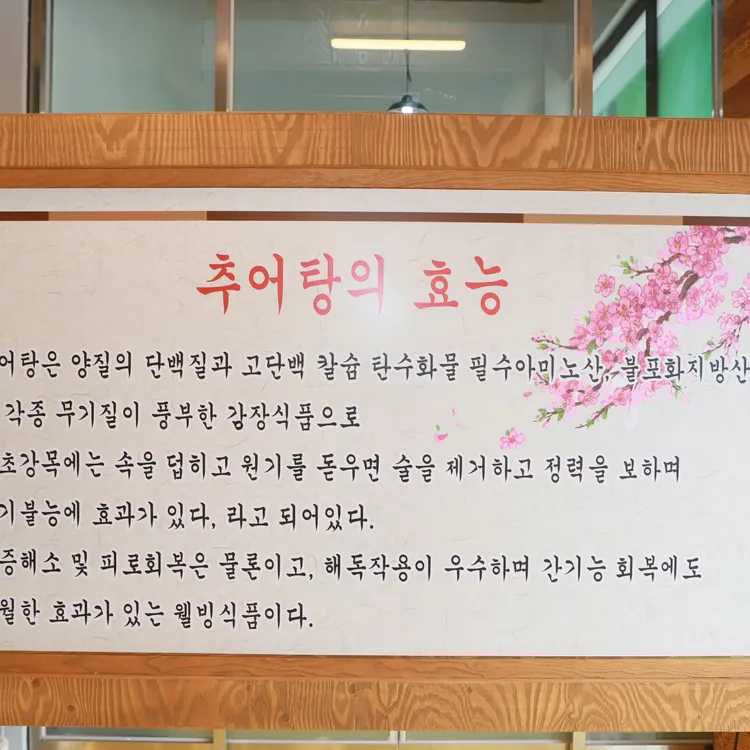 추어탕의 효능
어탕은 양질의 단백질과 고단백 칼슘 탄수화물 필수아미노산, 불포화지방산
각종 무기질이 풍부한 강장식품으로
초강목에는 속을 덥히고 원기를 돋우면 술을 제거하고 정력을 보하며
기불능에 효과가 있다, 라고 되어있다.
증해소 및 피로회복은 물론이고, 해독작용이 우수하며 간기능 회복에도
월한 효과가 있는 웰빙식품이다.